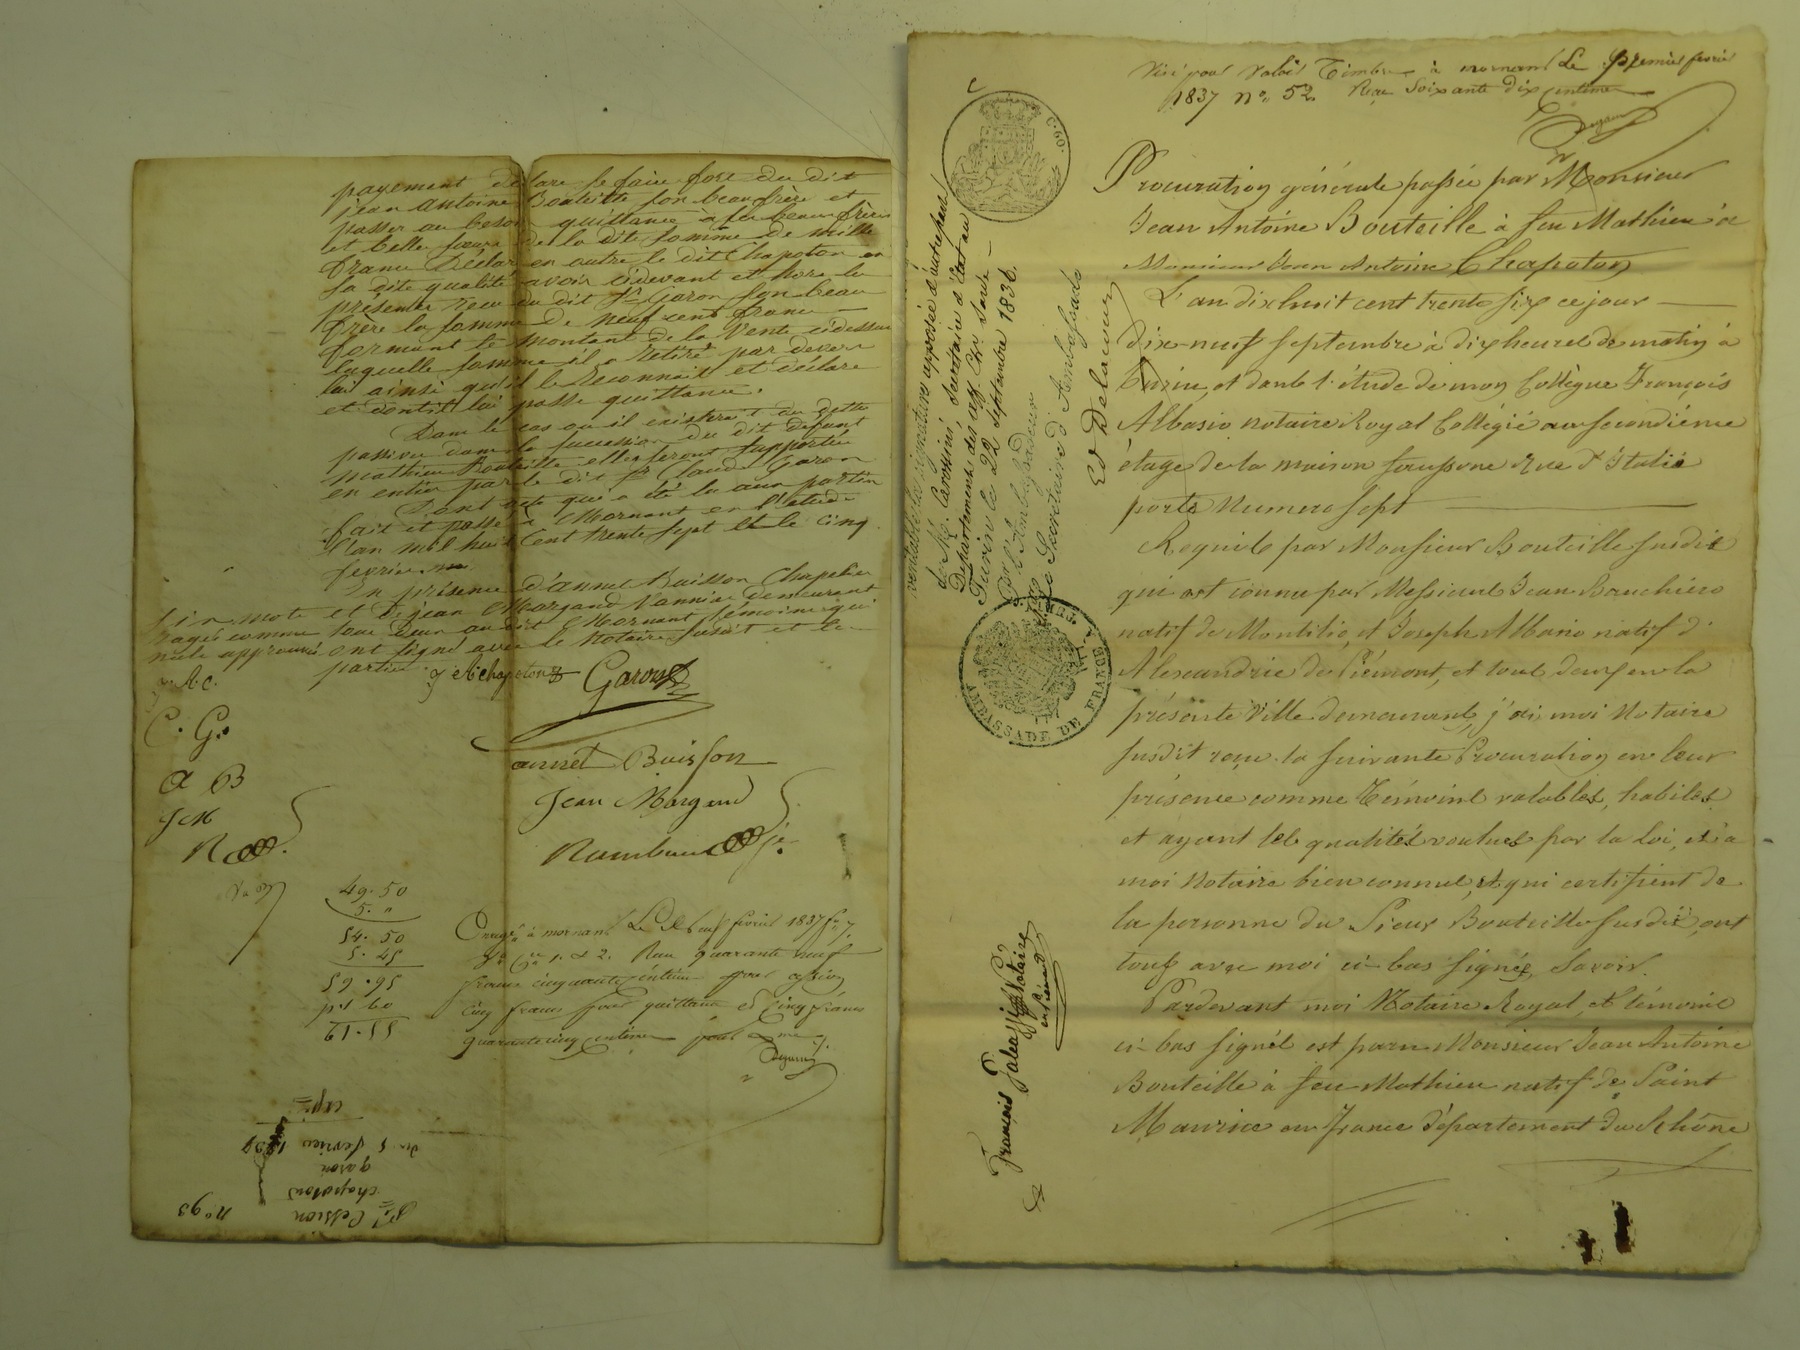 payement déclare se faire fort du dit
jean antoine Bouteille son beau frère et
passer au besoin quittance à ses beaux frères
et belle sœurs de la dite somme de mille
francs Déclare en outre le dit Chapoton en
sa dite qualité avoir cidevant et hors les
présentes reçu du dit Sr Garon son beau
frère la somme de neuf cent francs
formant le montant de la vente cidessus
laquelle somme il a retiré par devers
lui ainsi qu'il le Reconnait et déclare
et dont il lui passe quittance.
Dans le cas où il existerait des dettes
passives dans la succession du dit défunt
mathieu Bouteille elles seront supportées
en entier par le dit Sr Claude Garon
Dont acte qui a été lu aux parties
fait et passé à Mornant en l'étude
l'an mil huit Cent trente sept et le cinq
fevrier
En présence d'annet Buisson Chapelier
et de jean Margand Vannier demeurant
tous deux au dit Mornant témoins qui
ont signé avec le Notaire susdit et les
parties.
mots
rayés comme
nuls approuvés
j A Chapoton Garon
annet Buisson
Jean Margand
C. G.
A B
J M
R
49. 50
5. "
54. 50
5. 45
59. 95
p. 1 60
61. 55
Enregé à mornant Le Neuf fevrier 1837 fo 7.
1. et 2. Reçu quarante neuf
francs cinquante centimes pour cession
cinq francs pour quittance et cinq francs
quarante cinq centimes pour dme
Cession
chapoton
garon
du 5 fevrier 1837
expée
no 93
Visé pour valoir Timbre à mornant Le Premier fevrier
1837 no. 52. Reçu Soixante dix centimes
C. 60.
Procuration générale passée par Monsieur
Jean Antoine Bouteille à feu Mathieu à
Monsieur Jean Antoine Chapoton
L'an dix huit cent trente six ce jour
dix-neuf septembre à dix heures de matin à
Turin, et dans l'étude de mon Collègue François
Albasio notaire Royal Collégié au secondième
étage de la maison Rue d'Italie
porte Numero sept
Requis par Monsieur Bouteille susdit
qui est connu par Messieurs Jean Bauchiero
natif de Montilio, et Joseph Albario natif d'
Alexandrie de Piémont, et tous deux en la
présente Ville demeurants, j'ai moi Notaire
susdit reçu la suivante Procuration en leur
présence comme Témoins valables, habiles
et ayant les qualités voulues par la Loi, et à
moi Notaire bien connus, et qui certifient de
la personne du Sieur Bouteille susdit, ont
tous avec moi ci-bas signé, Savoir.
Pardevant moi Notaire Royal, et témoins
ci-bas signés est paru Monsieur Jean Antoine
Bouteille à feu Mathieu natif de Saint
Maurice en France département du Rhône
véritable la signature apposée d'autre part
de Mr. Carossini secrétaire d'Etat au
Département des aff. Etr. Sarde
Turin le 22 septembre 1836.
Pr l'Ambassadeur
Le Secrétaire d'Ambassade
Ed Delacour
AMBASSADE DE FRANCE
TURIN
François Notaire
en Piémont